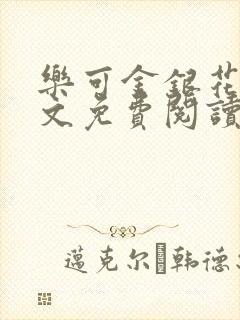 樂可金銀花
文免費閱讀
邁克尔�韩德